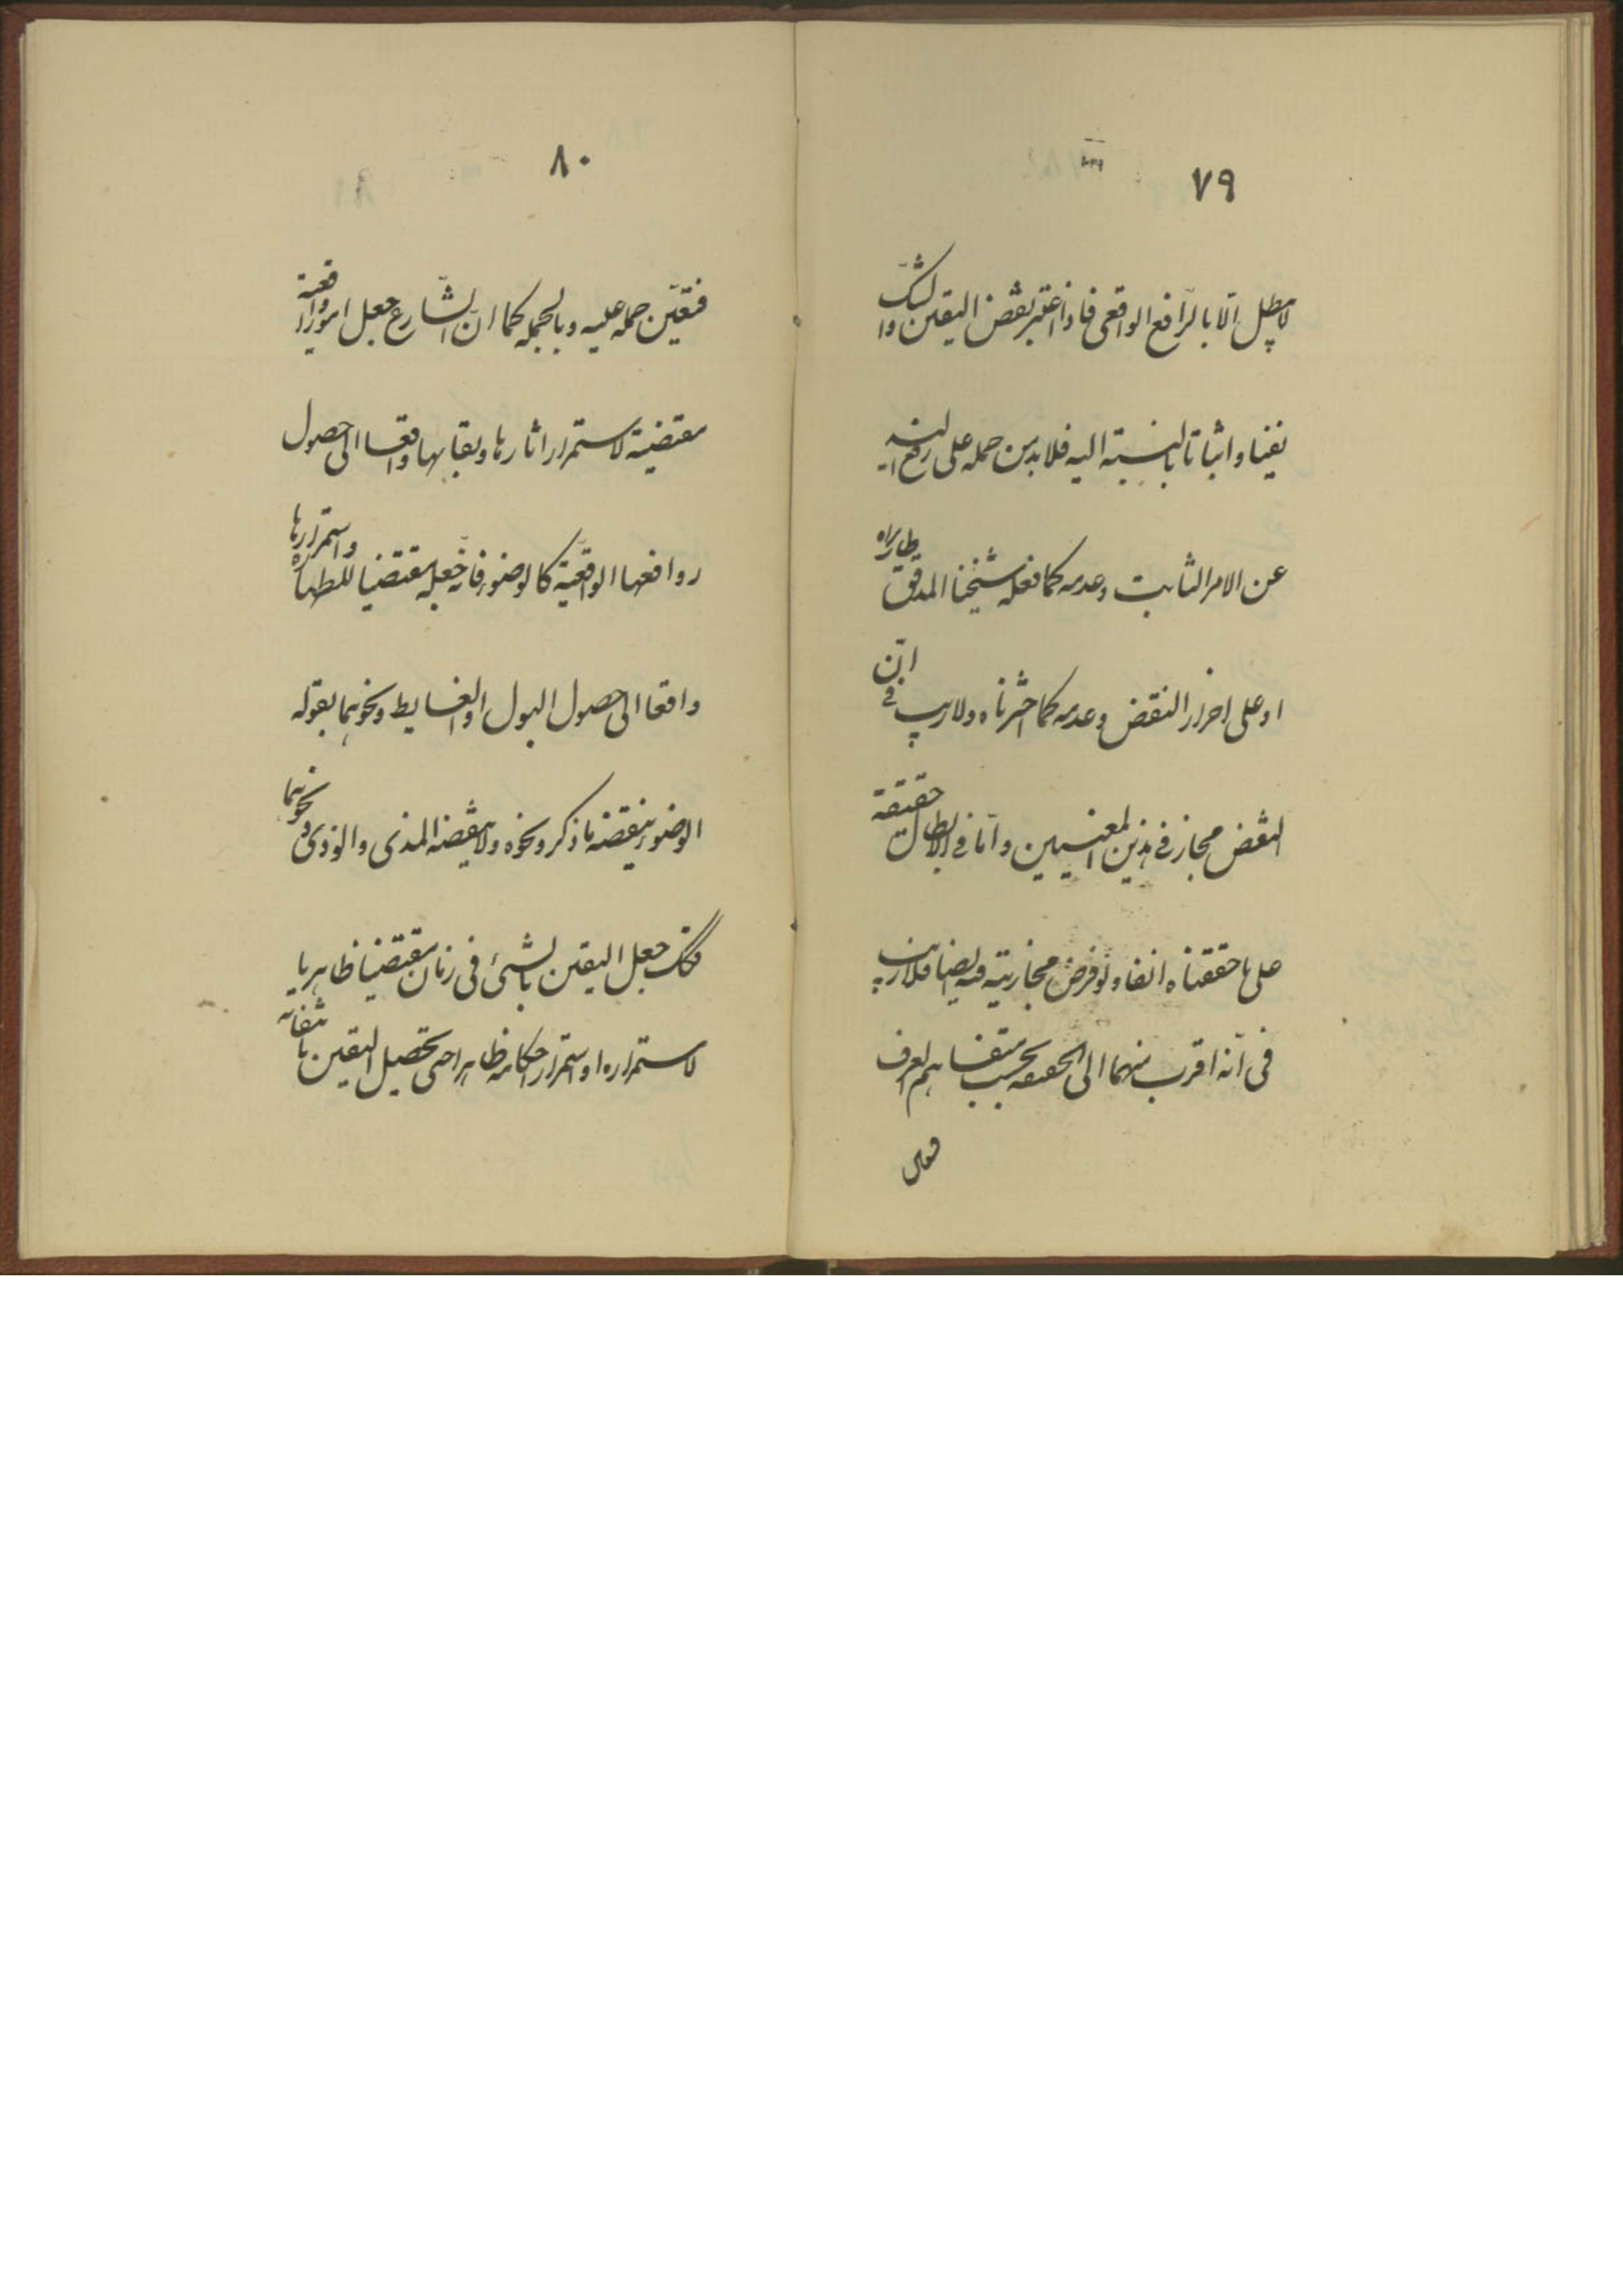 ٧٩
لا يبطل الّا بالرّافع الواقعى فاذا اعتبر نقض اليقين والشكّ
نفيا و اثباتا بالنسبة اليه فلا بد من حمله على رفع اليد
عن الامر الثابت وعدمه كما فعله شيخنا المدقق طاب ثراه
او على احراز النقض وعدمه كما اخترناه ولا ريب فى انّ
النقض مجاز فى هذين المعنيين وامّا فى الابطال حقيقة
على ما حققناه انفا ولو فرض مجازيته فيه ايضا فلا ريب
فى انّه اقرب منهما الى الحقيقه بحسب متفاهم العرف
٨٠
فتعيّن حمله عليه وبالجمله كما انّ الشّارع جعل امورا واقعية
مقتضية لاستمرار اثارها وبقائها واقعا الى حصول
روافعها الواقعيّة كالوضوء فانّه جعله مقتضيا للطهارة واستمرارها
واقعا الى حصول البول او الغايط ونحوهما بقوله
الوضوء ينقضه ما ذكر ونحوه ولا ينقضه المذى والوذى ونحوهما
فكك جعل اليقين بالشئ فى زمان مقتضيا ظاهريا
لاستمراره او استمرار احكامه ظاهرا حتى تحصيل اليقين بانتفائه